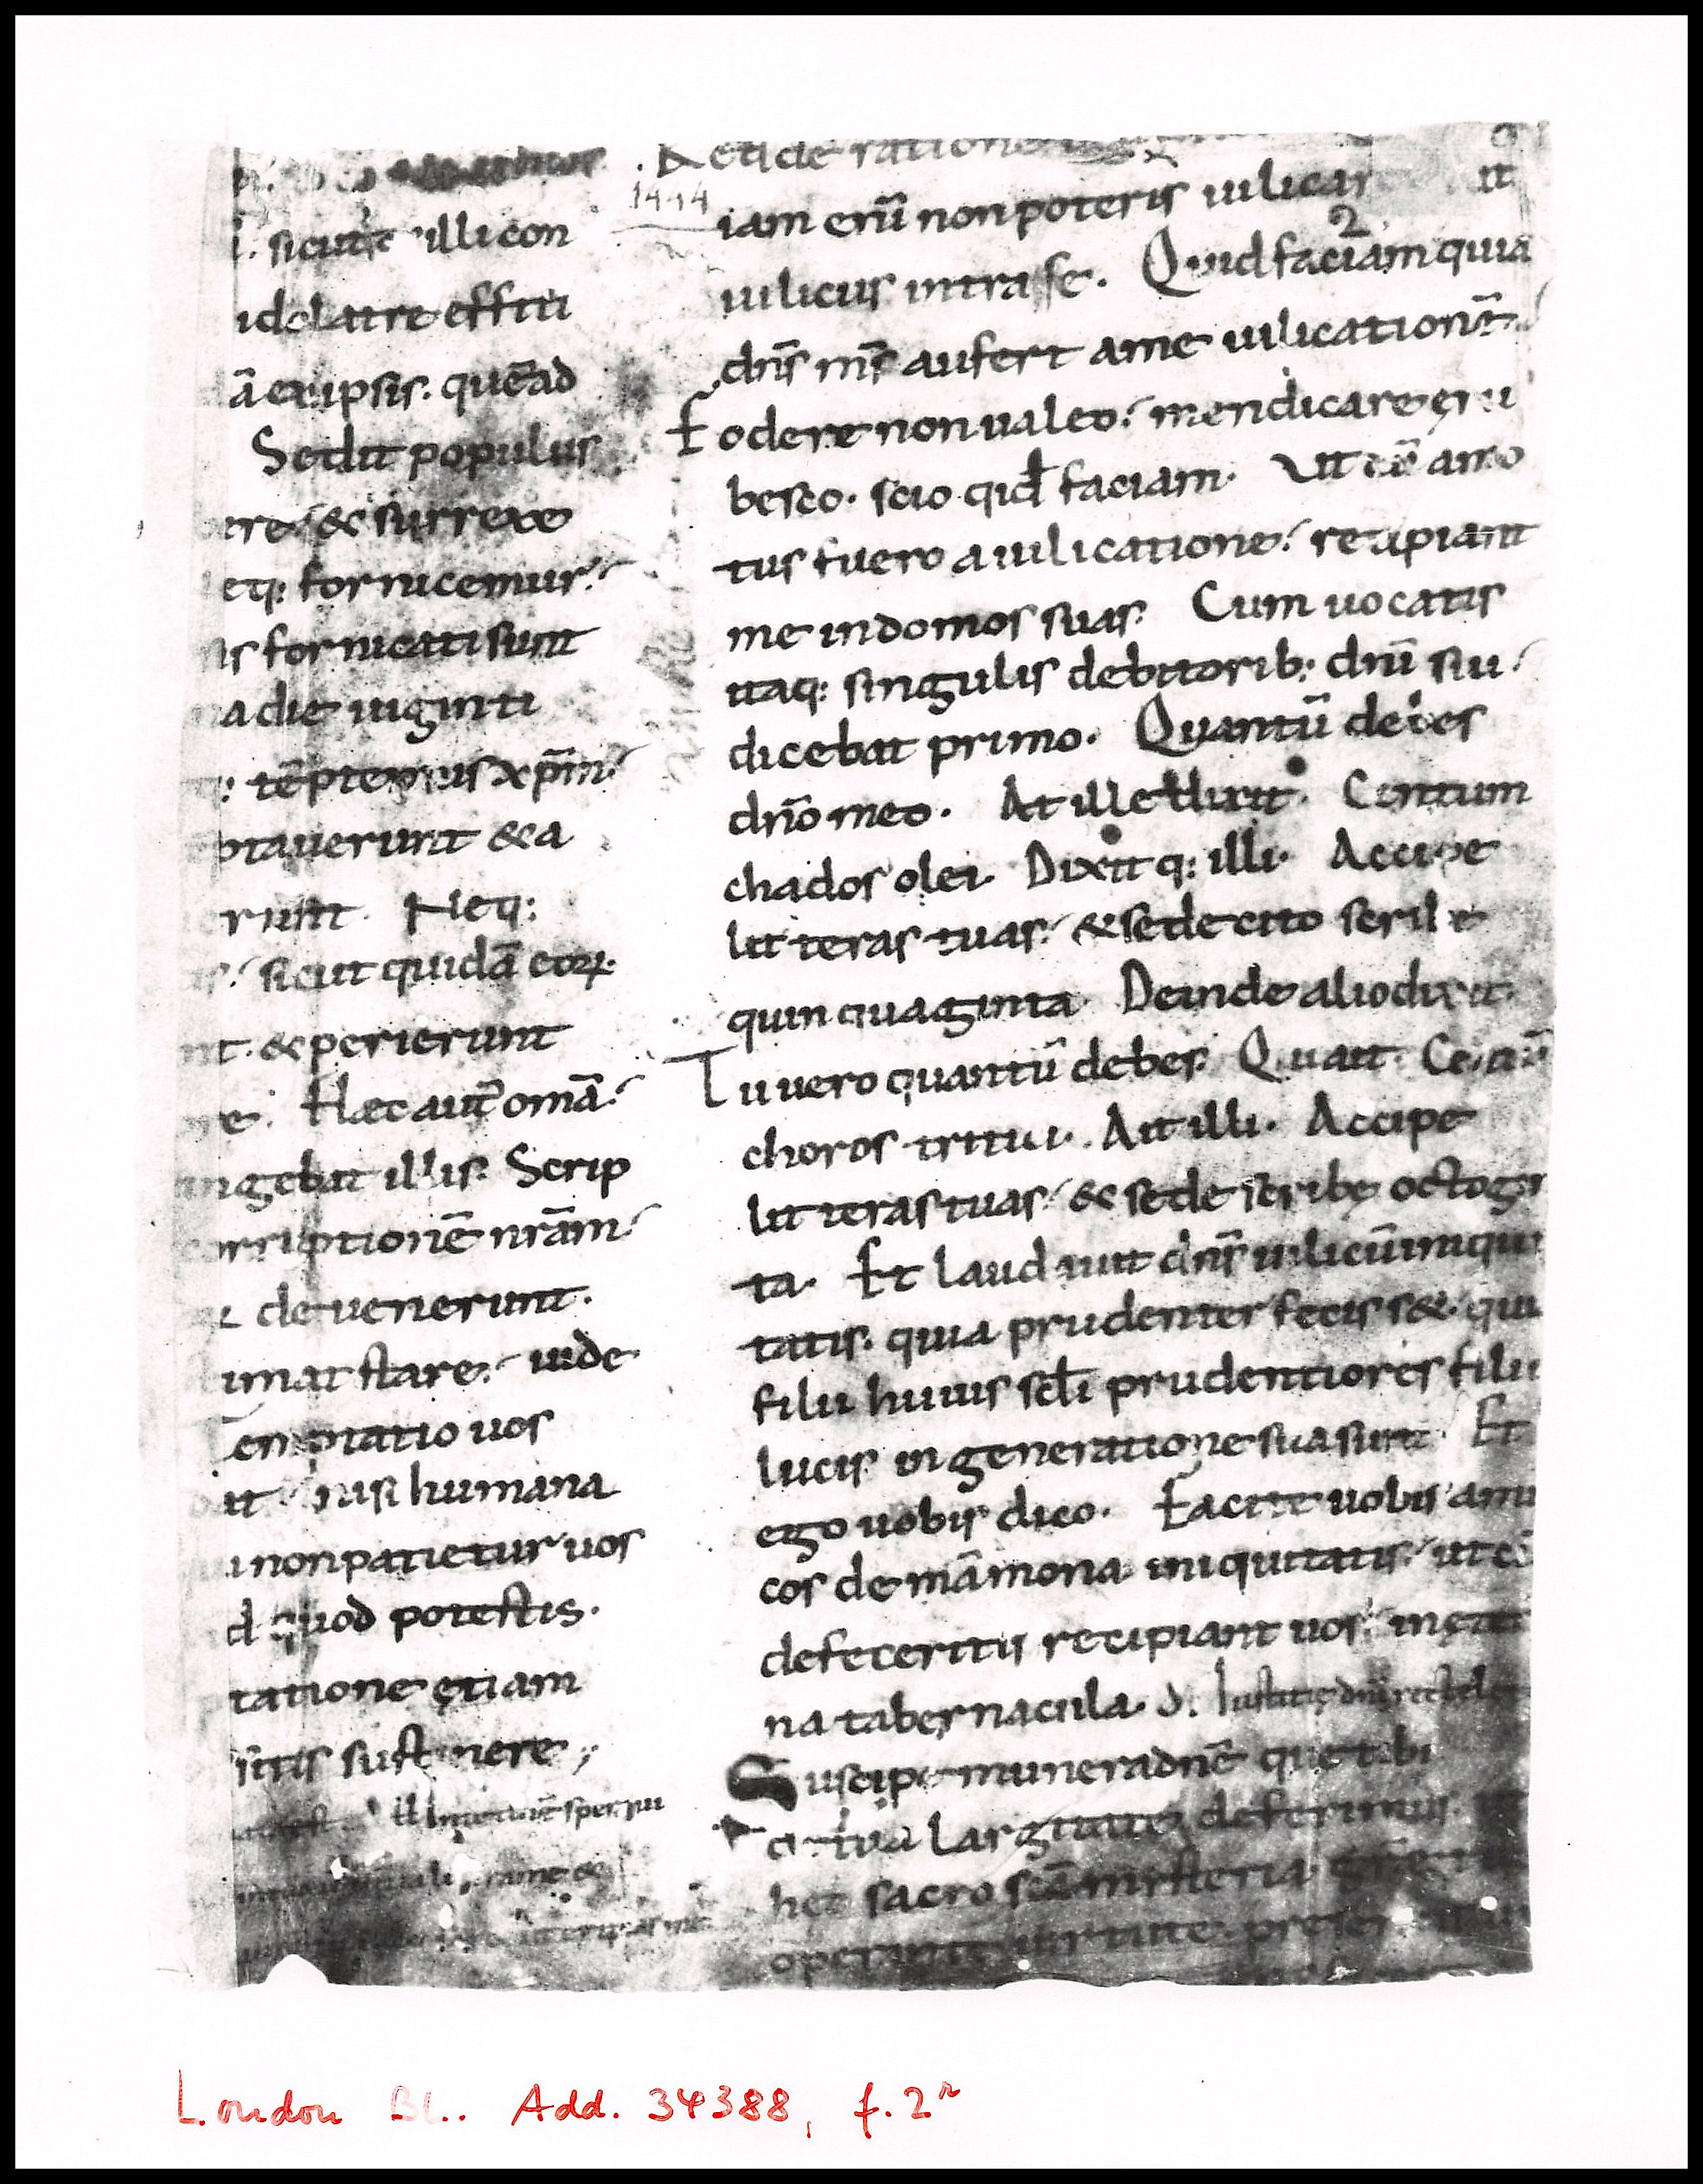 i. sicut & illi con
idolatre effitii
ā ex ipsis. quēad
Sedit populus
ere / & surrexe
etq: fornicemur.
is fornicati sunt
a die uiginti
tēptemus xp̄m.
ptauerunt & a
runt. Neq:
sicut quidā eoꝝ
nt. & perierunt
re. Hæc aut̄ omā.
ngebat illis. Scrip
orruptionē nr̄am.
de uenerunt.
imat stare. uide
emptatio uos
it nisi humana
i non patietur uos
d quod potestis.
tatione ętiam
sitis sustinere;
Redde ratione
1414
iam eni̅ non poteris uilicar it
2
uilicus intra se. Quid faciam quia
dn̄s m̄s aufert a me uilicationē.
Fodere non ualeo. mendicare eru
besco. scio qid faciam. Ut cū amo
tus fuero a uilicatione. recipiant
me in domos suas. Cum uocatis
itaq: singulis debitorib: dn̄i sui.
dicebat primo. Quantū debes
dn̄o meo. At ille dixit. Centum
chados olei. Dixitq: illi. Accipe
litteras tuas. & sede cito scribe
quinquaginta. Deinde alio dixit.
Tu uero quantū debes. Qui ait. Centū
choros tritici. Ait illi. Accipe
litteras tuas / & sede scribe octogi
ta. Et laudauit dn̄s uilicūm iniqui
tatis. quia prudenter fecisset. qui
filii huius scl̄i prudentiores filii
lucis in generatione sua sunt. Et
ego uobis dico. Facite uobis ami
cos de māmona iniquitatis. ut cū
defeceritis recipiant uos in ęter
na tabernacula. Iustitię dn̄i rectę
Suscipe munera dn̄e que tibi
de tua largitate deferimus.
hec sacro scā misteria
operante uirtute. presen
London BL. Add. 34388, f. 2r